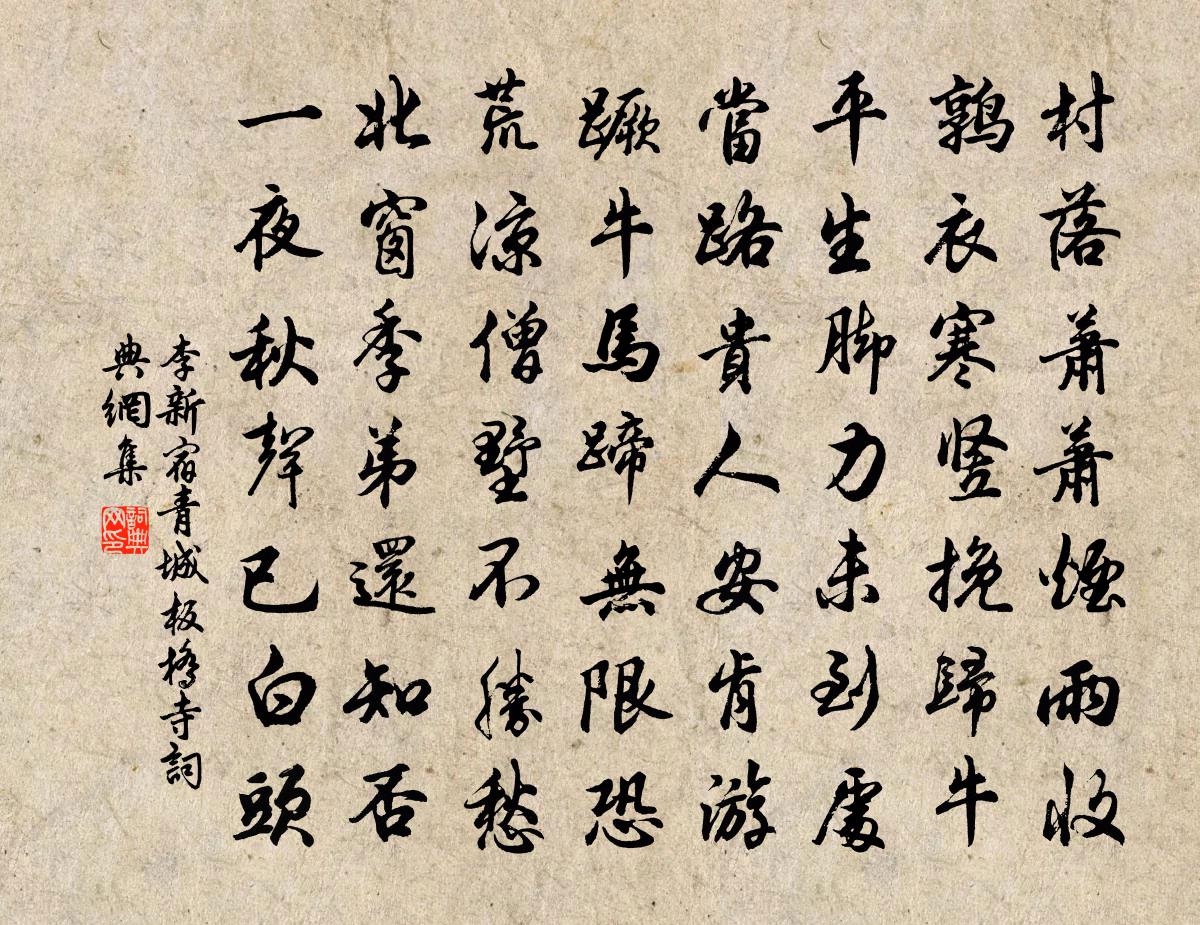 村落蕭蕭煙雨收
鶉衣寒竖挽歸牛
平生脚力未到處
當路貴人安肯游
蹶牛馬蹄無限恐
荒涼僧墅不勝愁
北窗季弟還知否
一夜秋聲已白頭
李新宿青城板橋寺詞
典網集
詞典网印